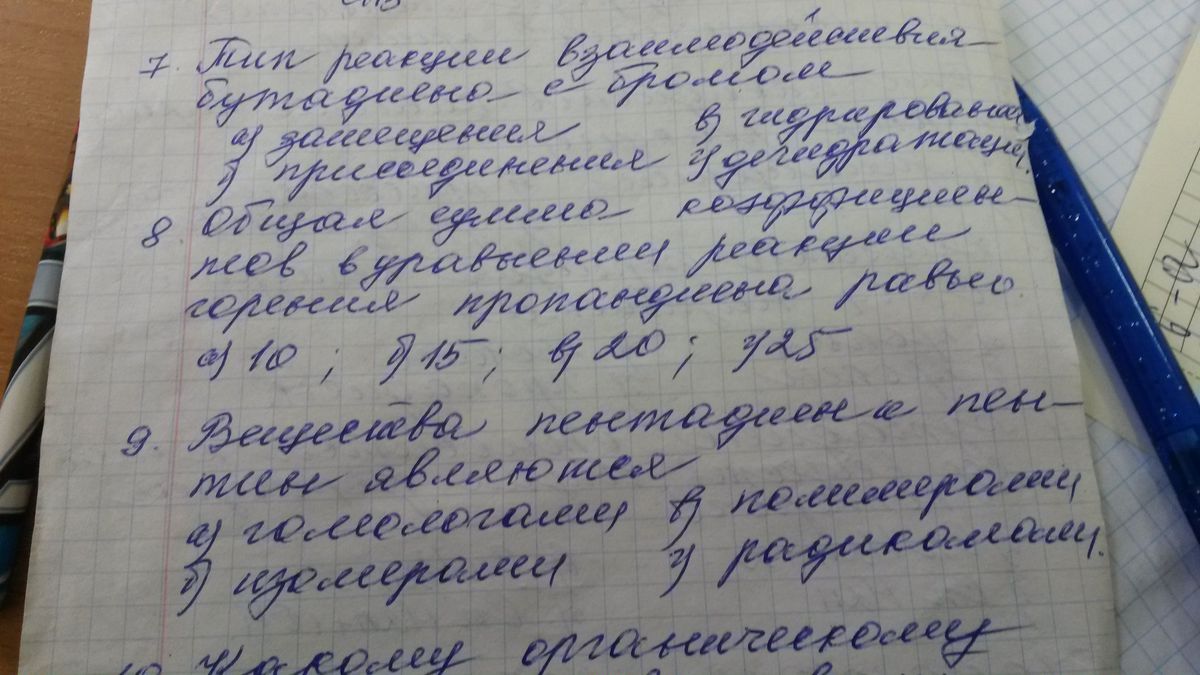 7. Тип реакции взаимодействия
бутадиена с бромом
а) замещения в) гидрирования
б) присоединения г) дегидратации.
8. Общая сумма коэффициен-
тов в уравнении реакции
горения пропандиена равна
а) 10 ; б) 15 ; в) 20 ; г) 25
9. Вещества пентадиен и пен-
тин являются
а) гомологами в) полимерами
б) изомерами г) радикалами.
10 Какому органическому